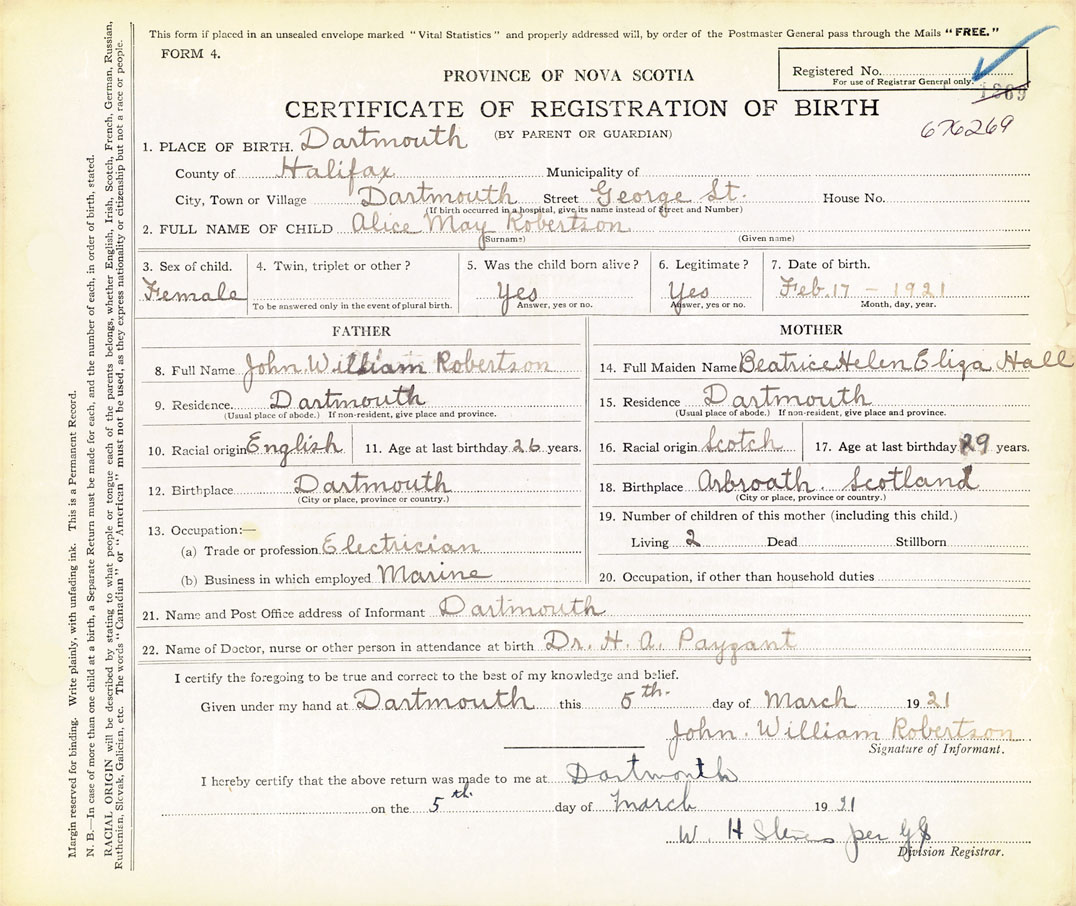 This form if placed in an unsealed envelope marked "Vital Statistics" and properly addressed will, by order of the Postmaster General pass through the Mails "FREE."
FORM 4.
Registered No.
For use of Registrar General only.
1869
PROVINCE OF NOVA SCOTIA
CERTIFICATE OF REGISTRATION OF BIRTH
(BY PARENT OR GUARDIAN)
676269
1. PLACE OF BIRTH. Dartmouth
County of Halifax Municipality of
City, Town or Village Dartmouth Street George St. House No.
(If birth occurred in a hospital, give its name instead of Street and Number)
2. FULL NAME OF CHILD Alice May Robertson
(Surname) (Given name)
3. Sex of child. Female
4. Twin, triplet or other?
To be answered only in the event of plural birth.
5. Was the child born alive? Yes
Answer, yes or no.
6. Legitimate? Yes
Answer, yes or no.
7. Date of birth. Feb. 17 - 1921
Month, day, year.
FATHER
8. Full Name John William Robertson
9. Residence. Dartmouth
(Usual place of abode.) If non-resident, give place and province.
10. Racial origin English 11. Age at last birthday 26 years.
12. Birthplace Dartmouth
(City or place, province or country.)
13. Occupation:—
(a) Trade or profession Electrician
(b) Business in which employed Marine
MOTHER
14. Full Maiden Name Beatrice Helen Eliza Hall
15. Residence Dartmouth
(Usual place of abode.) If non-resident, give place and province.
16. Racial origin Scotch 17. Age at last birthday 29 years.
18. Birthplace Arbroath. Scotland
(City or place, province or country.)
19. Number of children of this mother (including this child.)
Living 2 Dead Stillborn
20. Occupation, if other than household duties
21. Name and Post Office address of Informant Dartmouth
22. Name of Doctor, nurse or other person in attendance at birth Dr. H. A. Payzant
I certify the foregoing to be true and correct to the best of my knowledge and belief.
Given under my hand at Dartmouth this 5th. day of March 1921
John. William Robertson
Signature of Informant.
I hereby certify that the above return was made to me at Dartmouth
on the 5th. day of March 1921
W. H Stevens per
Division Registrar.
Margin reserved for binding. Write plainly, with unfading ink. This is a Permanent Record.
N. B.—In case of more than one child at a birth, a Separate Return must be made for each, and the number of each, in order of birth, stated.
RACIAL ORIGIN will be described by stating to what people or tongue each of the parents belongs, whether English, Irish, Scotch, French, German, Russian,
Ruthenian, Slovak, Galician, etc. The words "Canadian" or "American" must not be used, as they express nationality or citizenship but not a race or people.